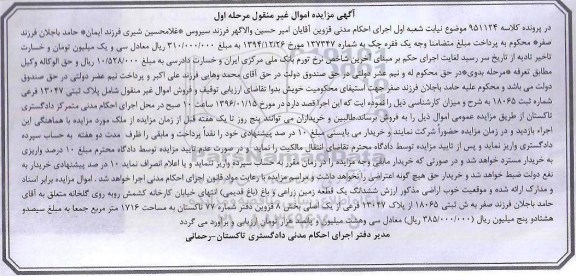 آگهی مزایده اموال غیر منقول مرحله اول
در پرونده کلاسه ۹۵۱۱۲۴ موضوع نیابت شعبه اول اجرای احکام مدنی قزوین آقایان امیر حسین والاگهر فرزند سیروس *غلامحسین شیری فرزند ایمان* حامد باجلان فرزند
صفر* محکوم به پرداخت مبلغ متضامنا وجه یک فقره چک به شماره ۱۳۷۳۴۷ مورخ ۱۳۹۴/۱۲/۲۶ مبلغ ۳۱۰/۰۰۰/۰۰۰ ریال معادل سی و یک میلیون تومان و خسارت
تاخیر تادیه از تاریخ سر رسید لغایت اجرای حکم بر مبنای آخرین شاخص نرخ تورم بانک ملی مرکزی ایران و خسارت دادرسی به مبلغ ۱۰/۵۲۸/۰۰۰ ریال و حق الوکاله وکیل
مطابق تعرفه *مرحله بدوی*در حق محکوم له و نیم عشر دولتی در حق صندوق دولت در حق آقای محمد وهابی فرزند علی اکبر و پرداخت نیم عشر دولتی در حق صندوق
دولت می باشد و محکوم علیه حامد باجلان فرزند صفر جهت استیفای محکومیت خویش بدوا تقاضای ارزیابی توقیف و فروش اموال غیر منقول شامل پلاک ثبتی ۱۳۰۴۷ فرعی
شماره ثبت ۱۸۰۶۵ به شرح و میزان کارشناسی ذیل را نموده ایت که این اجرا قصد دارد در مورخ ۱۳۹۶/۰۱/۱۵ ساعت ۱۰ صبح در محل اجرای احکام مدنی متمرکز دادگستری
تاکستان از طریق مزایده عمومی اموال ذیل را به فروش برساند.طالبین و خریداران می توانند پنج روز تا یک هفته قبل از زمان مزایده از ملک مورد مزایده با هماهنگی این
اجراء بازدید و در زمان مزایده حضوراً شرکت نمایند و خریدار می بایستی مبلغ ۱۰ در صد پیشنهادی خود را نقداً پرداخت و مابقی را ظرف مدت دو هفته به حساب سپرده
دادگستری واریز نماید و پس از تایید مزایده توسط دادگاه محترم تقاضای انتقال مالکیت را نماید و در صورت عدم تایید مزایده توسط دادگاه محترم مبلغ ۱۰ درصد واریزی
به خریدار مسترد خواهد شد و در صورتی که خریدار مابقی وجه مزایده را در زمان مقرر به حساب سپرده واریز ننماید و یا اعلام انصراف نماید ۱۰ در صد پیشنهادی خریدار به
نفع دولت ضبط خواهد شد و خریدار حق هیچ گونه اعتراضی را نخواهد داشت و مراسم مزایده با رعایت مواد قانون اجرای احکام مدنی اجرا خواهد شد . اموال مزایده برابر اسناد
و مدارک ارائه شده و موقعیت خوب اراضی مذکور ارزش ششدانگ یک قطعه زمین زراعی و باغ (باغ قدیمی) انتهای خیابان کارخانه کشمش روبه روی گلخانه متعلق به آقای
حامد باجلان فرزند صفر به ش ثبتی ۱۸۰۶۵ از پلاک ۱۳۰۴۷ فرعی از یک اصلی بخش ۸ قزوین دفتر شماره ۷۷ تاکستان به مساحت ۱۷۱۶ متر مربع جمعا به مبلغ سیصدو
هشتادو پنج میلیون ریال (۳۸۵/۰۰۰/۰۰۰ ریال) معادل سی وهشت میلیون و پانصد هزار تومان ارزیابی و برآورد می گردد
مدیر دفتر اجرای احکام مدنی دادگستری تاکستان-رحمانی